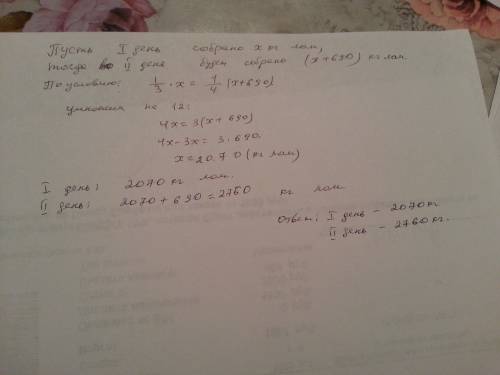 Пусть I день собрано x кг лом,
тогда во II день будет собрано (x+690) кг лом.
По условию: 1/3 · x = 1/4 (x+690)
умножим на 12:
4x = 3(x + 690)
4x-3x = 3·690
x = 2070 (кг лом)
I день: 2070 кг лом.
II день: 2070 + 690 = 2760 кг лом
Ответ: I день - 2070 кг
II день - 2760 кг.